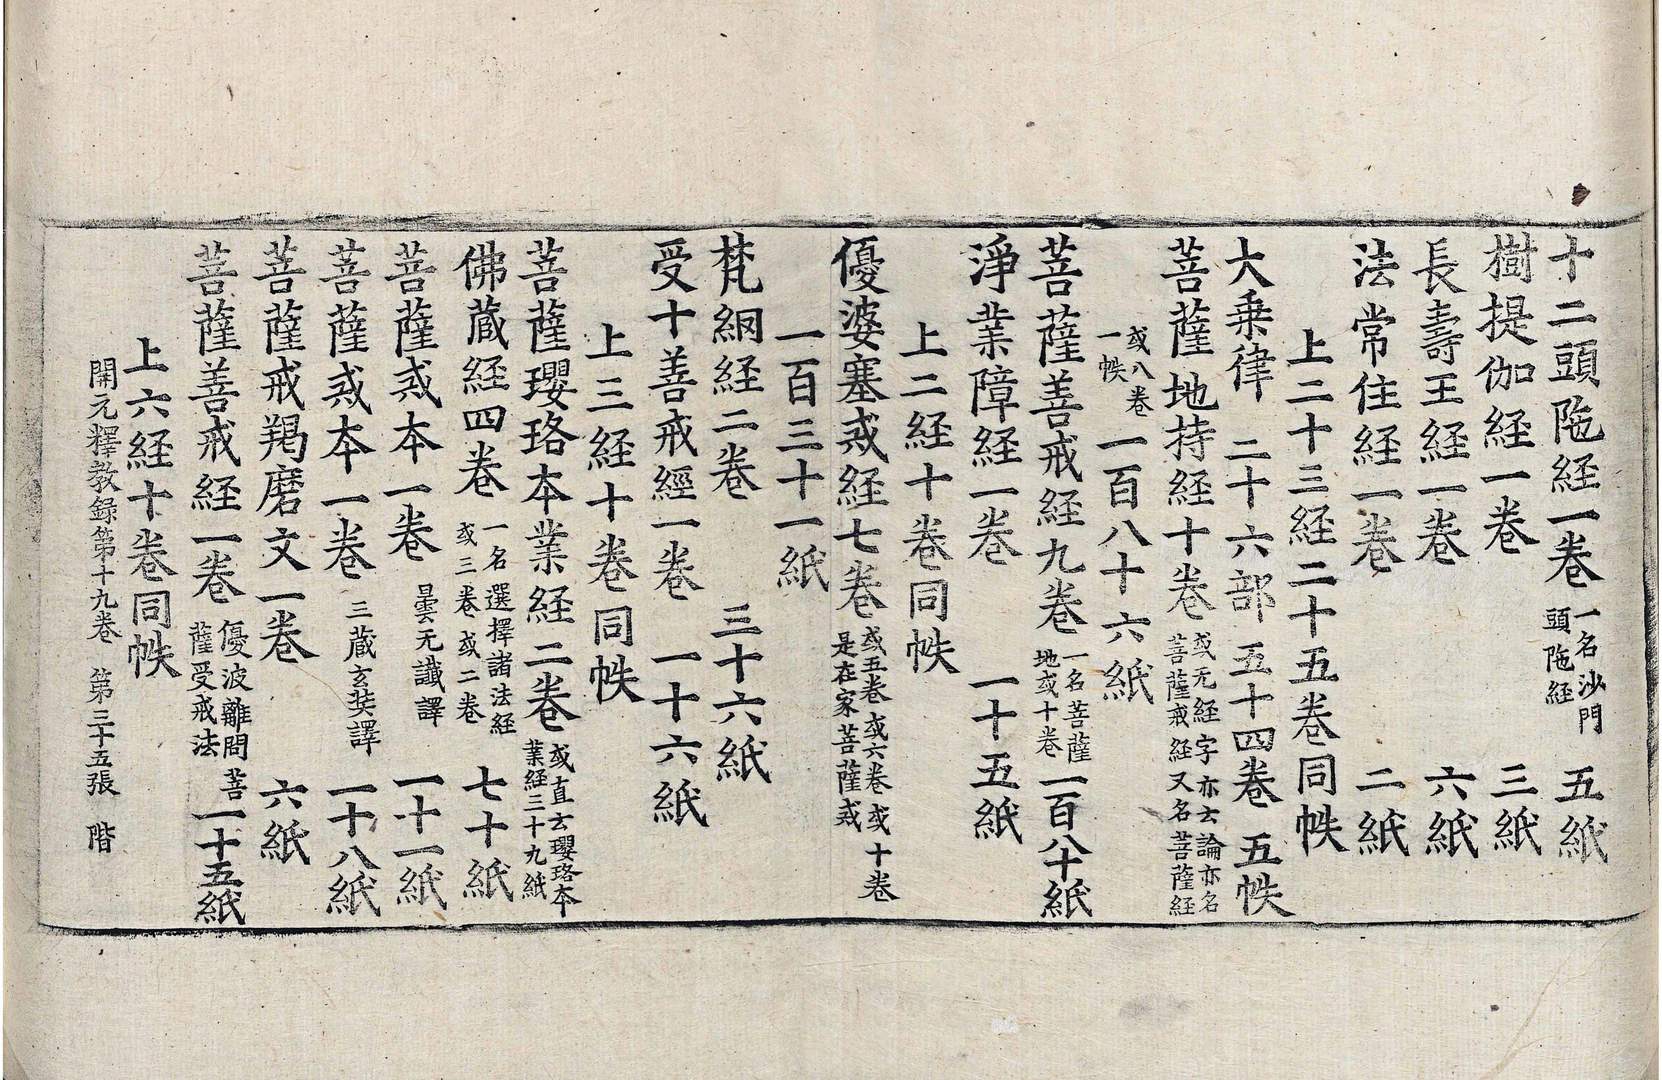 十二頭陁経一卷 一名沙門頭陁経 五紙
樹提伽経一卷 三紙
長壽王経一卷 六紙
法常住経一卷 二紙
上二十三経二十五卷同帙
大乗律 二十六部 五十四卷 五帙
菩薩地持経十卷 或无経字亦云論亦名菩薩戒経又名菩薩経
或八卷一帙 一百八十六紙
菩薩善戒経九卷 一名菩薩地或十卷 一百八十紙
淨業障経一卷 一十五紙
上二経十卷同帙
優婆塞戒経七卷 或五卷或六卷或十卷是在家菩薩戒
一百三十一紙
梵網経二卷 三十六紙
受十善戒經一卷 一十六紙
上三経十卷同帙
菩薩瓔珞本業経二卷 或直云瓔珞本業経三十九紙
佛蔵経四卷 一名選擇諸法経或三卷或二卷 七十紙
菩薩戒本一卷 曇无讖譯 一十一紙
菩薩戒本一卷 三蔵玄奘譯 一十八紙
菩薩戒羯磨文一卷 六紙
菩薩善戒経一卷 優波離問菩薩受戒法 一十五紙
上六経十卷同帙
開元釋教録第十九卷 第三十五張 階